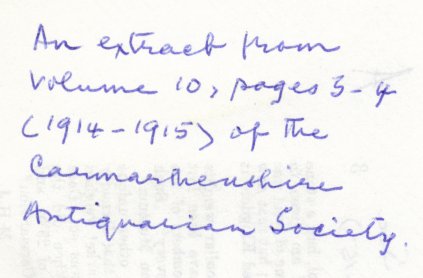 An extract from
Volume 10, pages 3-4
(1914-1915) of the
Carmarthenshire
Antiquarian Society.